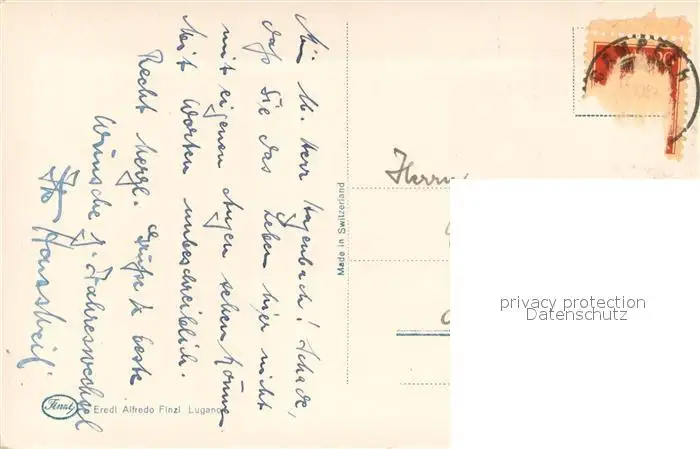 Mein lb. Herr Hugenbach! Schade,
daß Sie das Leben hier nicht
mit eigenen Augen sehen können
Mit Worten unbeschreiblich.
Recht herzl. Grüße & beste
Wünsche z. Jahreswechsel
Herrn
Made in Switzerland
Finzi
Eredi Alfredo Finzi Lugano
privacy protection
Datenschutz